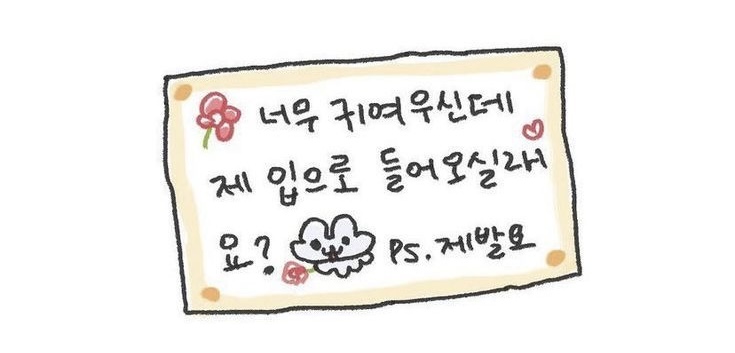 너무 귀여우신데
제 입으로 들어오실래
요? PS. 제발요